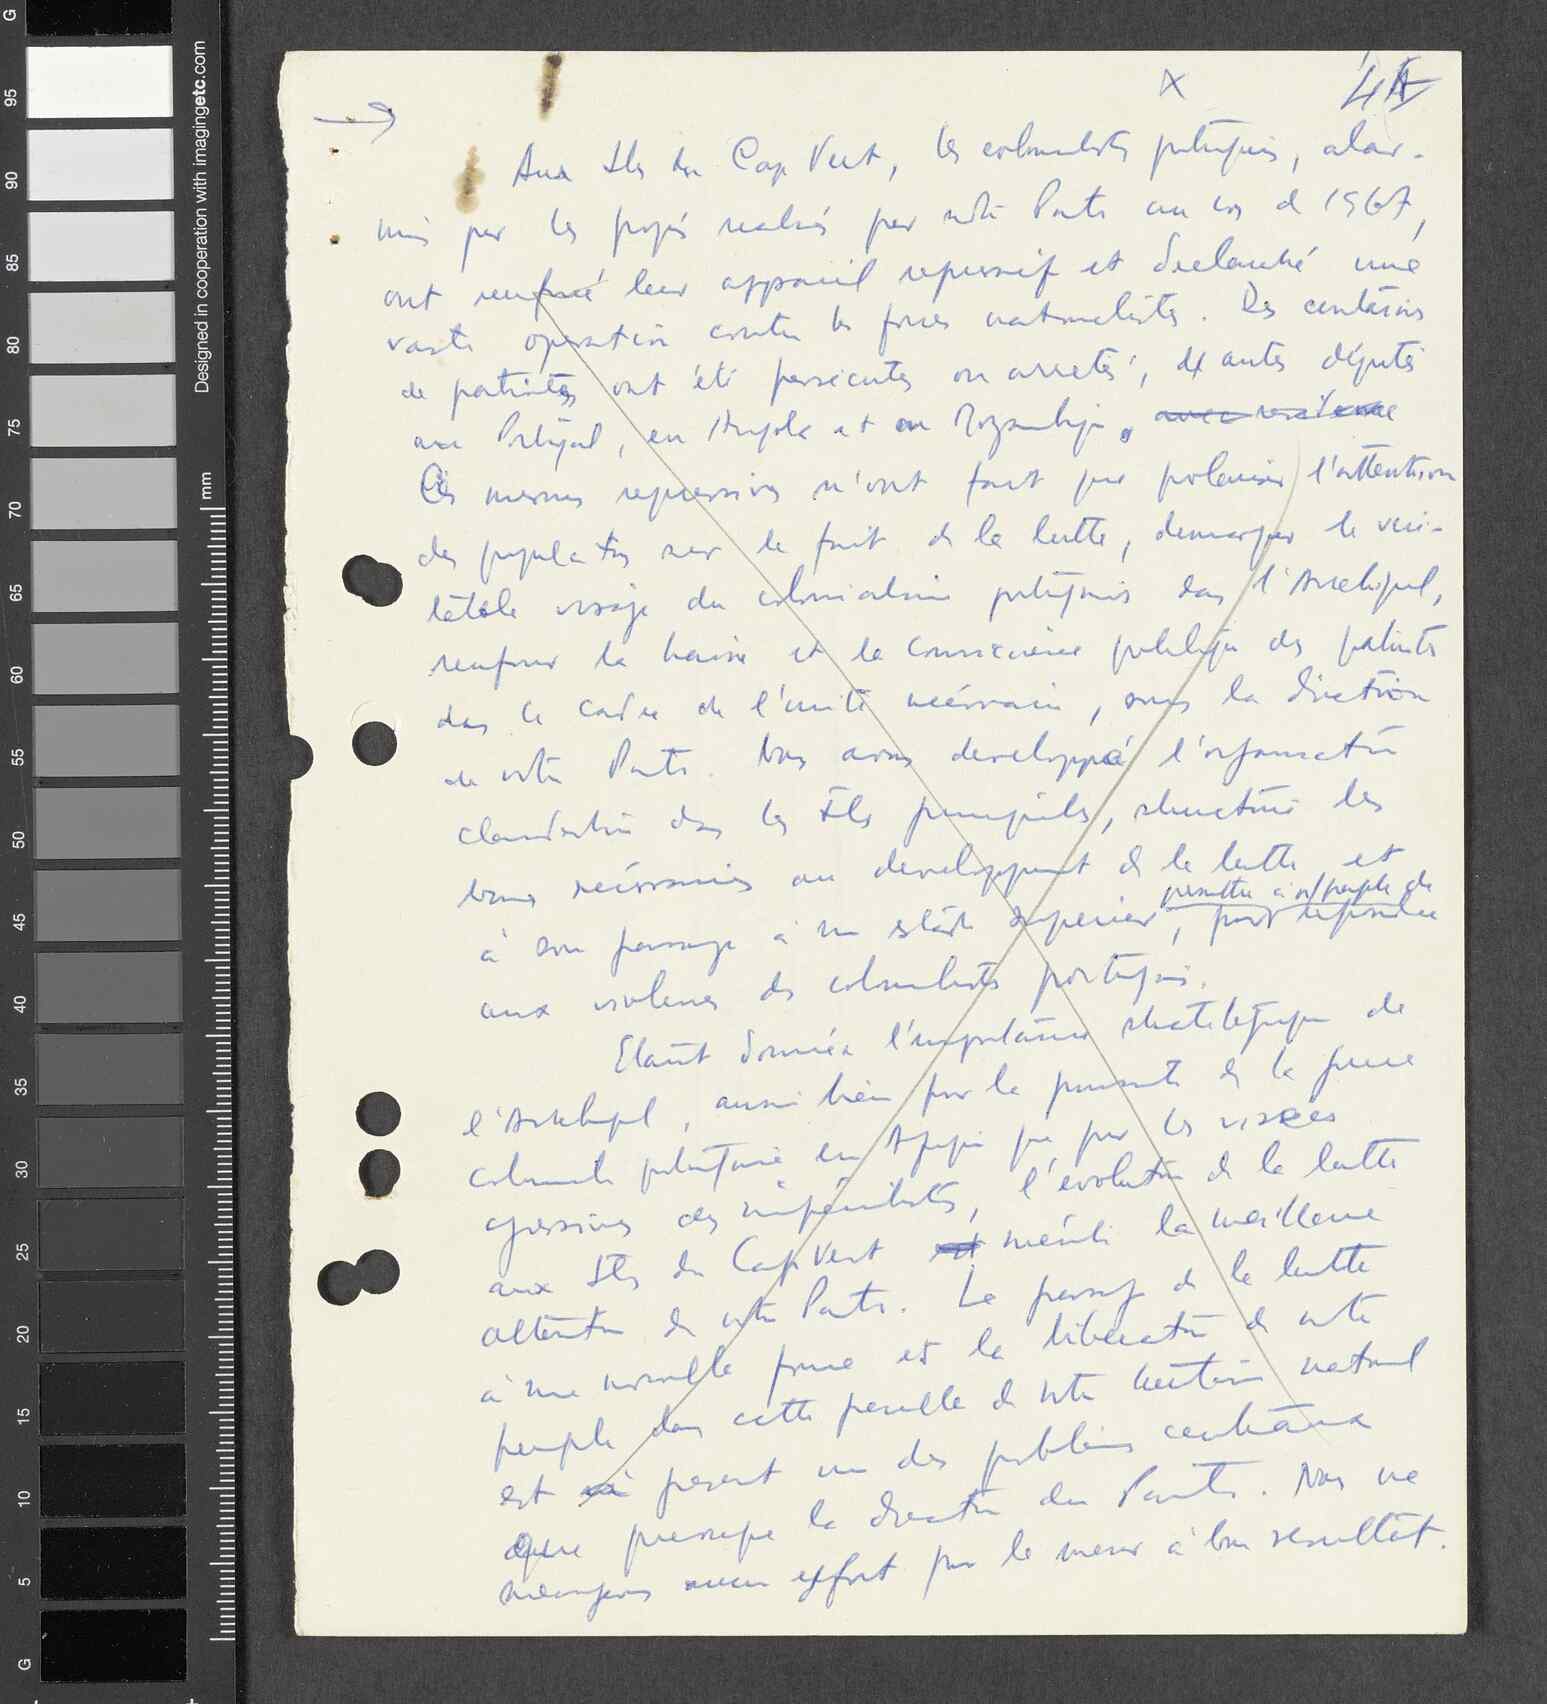 G
95
90
85
80
75
70
65
60
55
50
45
40
35
30
25
20
15
10
5
G
mm
Designed in cooperation with imagingetc.com
→ X 4
Aux Iles du Cap Vert, les colonialistes portugais, alar-
més par les progrès realisés par notre Parti au cos de 1967,
ont renforcé leur appareil repressif et declanché une
vaste operation contre les forces nationalistes. Des centaines
de patriotes ont été persecutés ou arretés, d'autres déportés
au Portugal, en Angola et au Mozambique.
Ces mesures repressives n'ont fait que polariser l'attention
des populations sur le fait de la lutte, demasquer le veri-
table visage du colonialisme portugais dans l'Archipel,
renforcer la haine et la conscience politique des patriotes
dans le cadre de l'unité nécessaire, sous la direction
de notre Parti. Nous avons developpé l'organisation
clandestine dans les Iles principales, structuré les
bases nécessaires au developpement de la lutte et
à son passage à un stade superieur, permettre à n/peuple de
pour repondre
aux violences des colonialistes portugais.
Etant donnée l'importance strategique de
l'Archipel, aussi bien pour la poursuite de la guerre
coloniale portugaise en Afrique que pour les visées
agressives des impérialistes, l'évolution de la lutte
aux Iles du Cap Vert mérite la meilleure
attention de notre Parti. Le passage de la lutte
à une nouvelle forme et la libération de notre
peuple dans cette parcelle de notre territoire national
est à present un des problèmes centraux
que preocupe la direction du Parti. Nous ne
menageons aucun effort pour le mener à bon resultat.